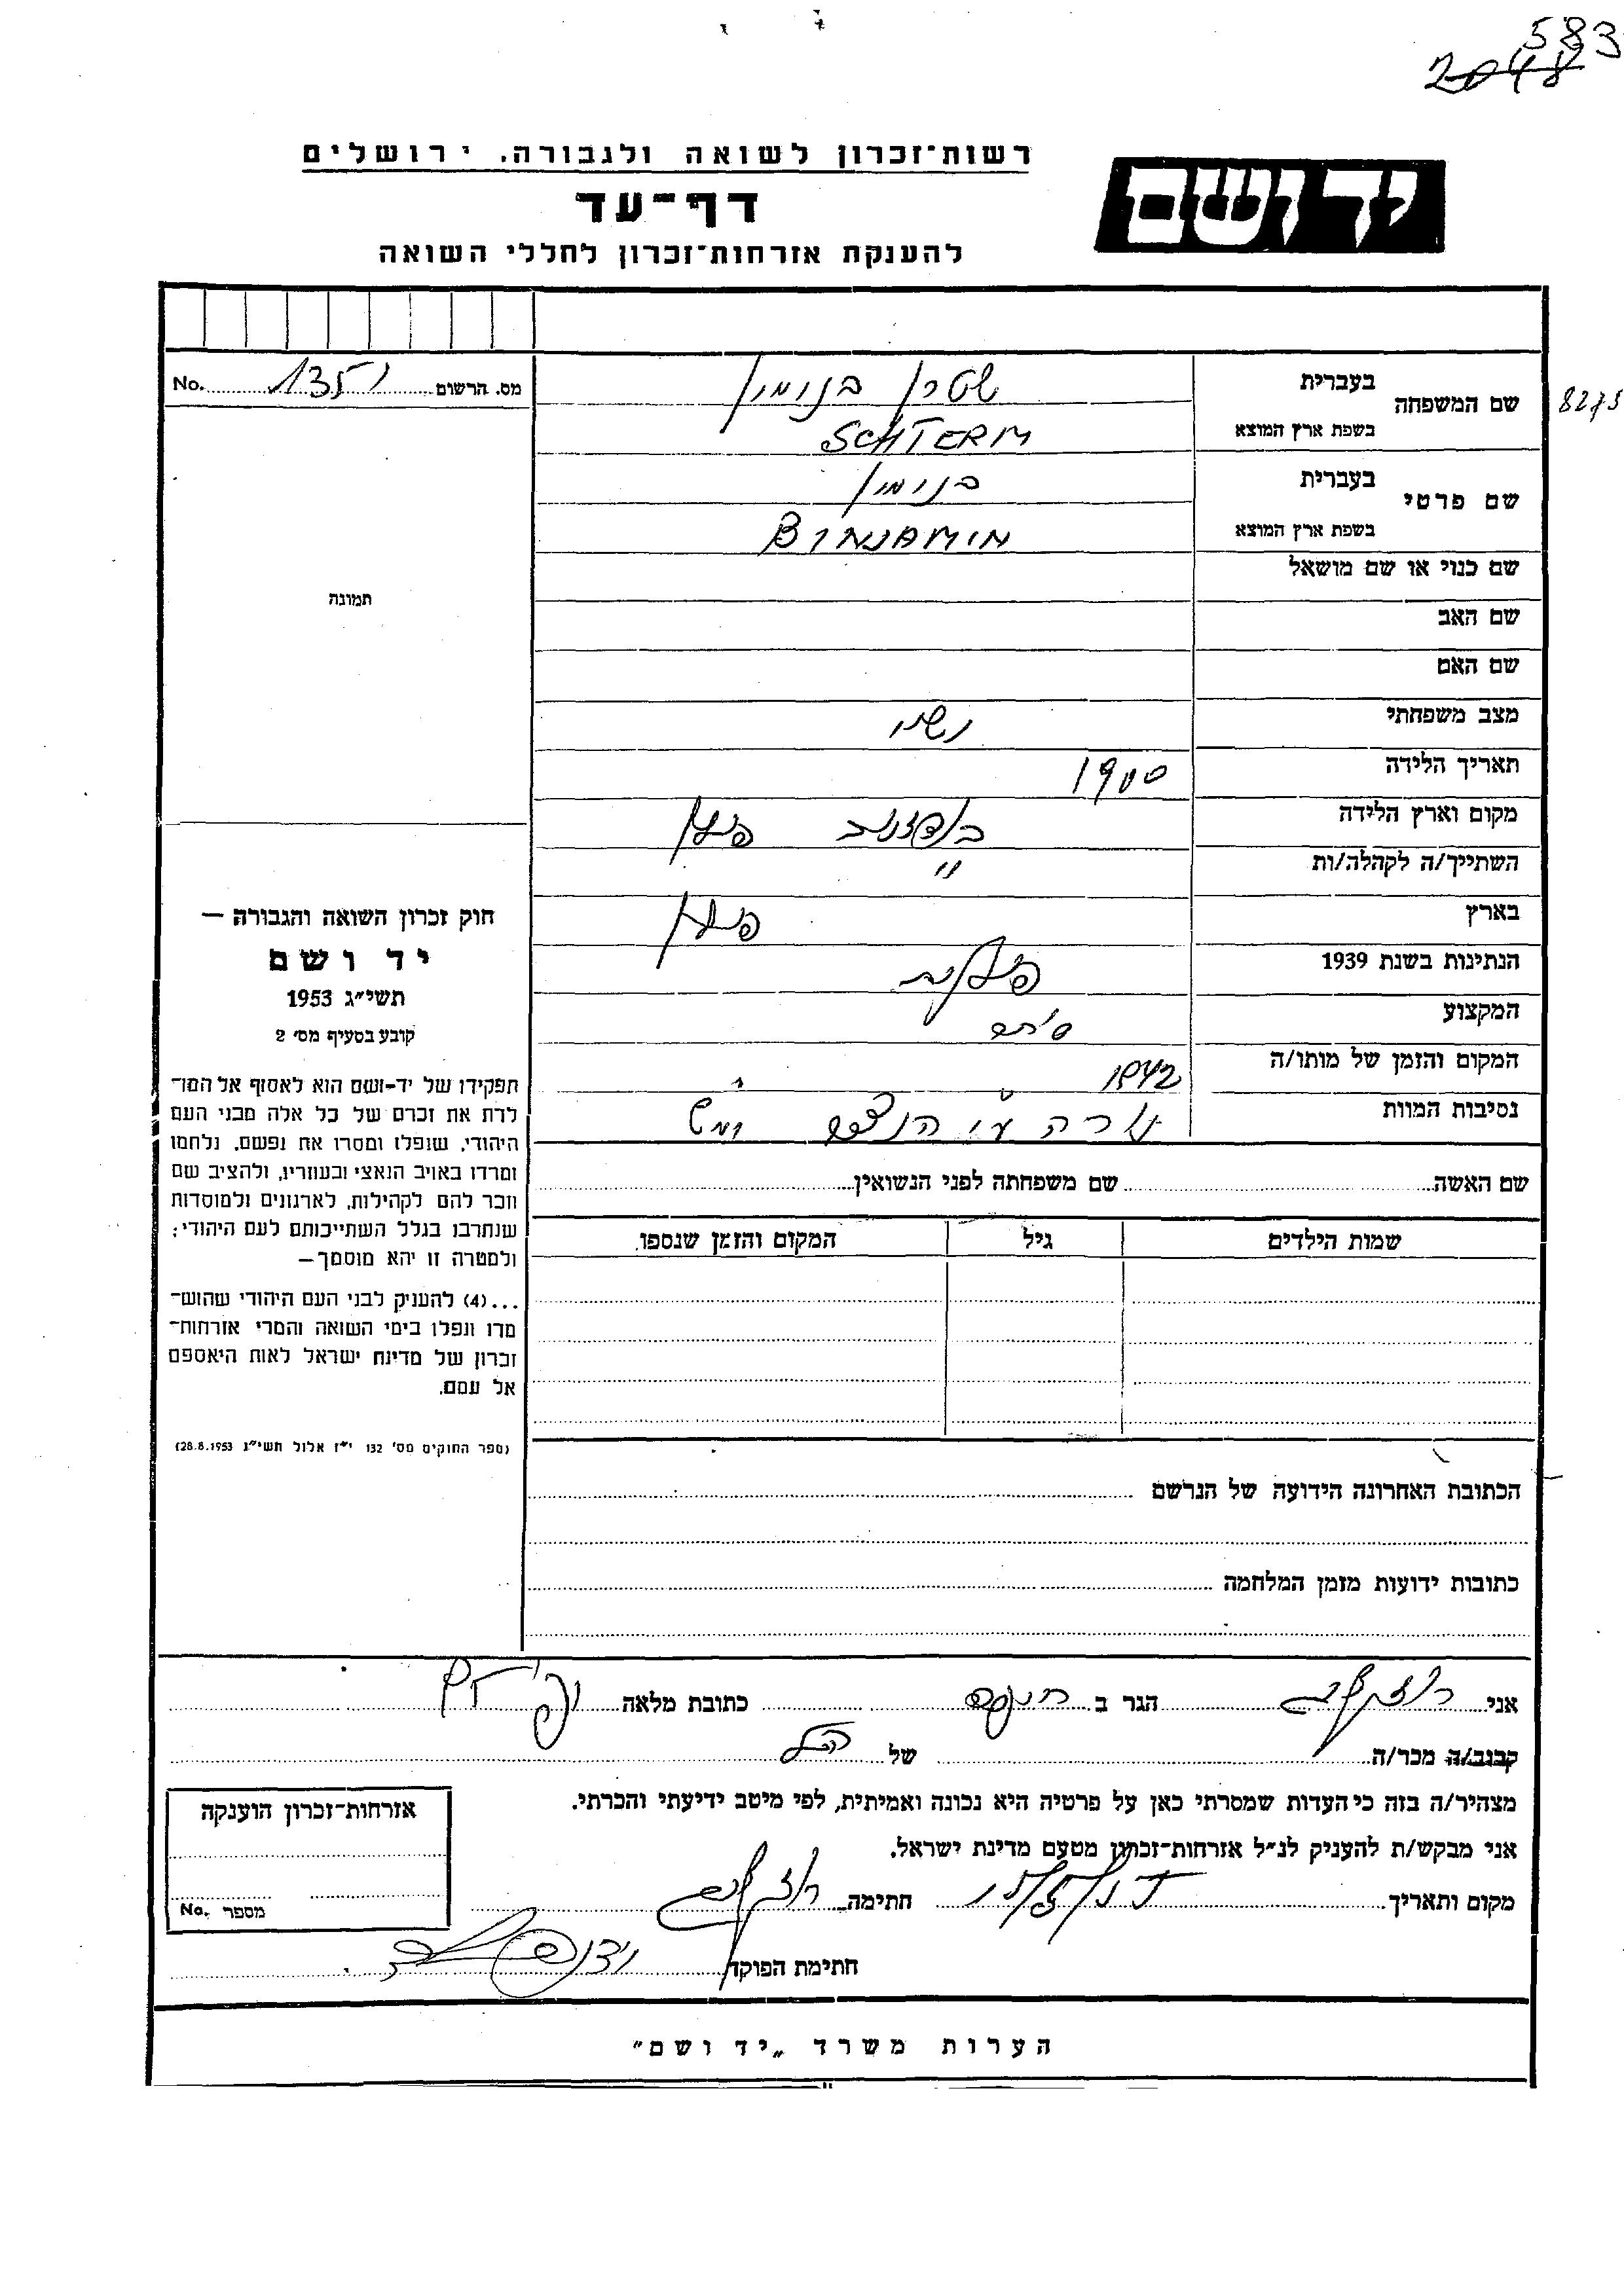 583
2048
רשות־זכרון לשואה ולגבורה, ירושלים
יד ושם
דף־עד
להענקת אזרחות־זכרון לחללי השואה
שם המשפחה בעברית שטרן בנימין
8275
בשפת ארץ המוצא SCHTERM
שם פרטי בעברית בנימין
בשפת ארץ המוצא BINJAMIN
שם כנוי או שם מושאל
שם האב
שם האם
מצב משפחתי נשוי
תאריך הלידה 1900
מקום וארץ הלידה פולין
השתייך/ה לקהלה/ות "
בארץ פולין
הנתינות בשנת 1939 פולנית
המקצוע סוחר
המקום והזמן של מותו/ה 1942
נסיבות המוות נורה ע"י הנצים ימ"ש
שם האשה שם משפחתה לפני הנשואין
שמות הילדים גיל המקום והזמן שנספו
הכתובת האחרונה הידועה של הנרשם
כתובות ידועות מזמן המלחמה
מס. הרשום 1351 No.
תמונה
חוק זכרון השואה והגבורה —
יד ושם
תשי״ג 1953
קובע בסעיף מס׳ 2
תפקידו של יד-ושם הוא לאסוף אל המו־
לדת את זכרם של כל אלה מבני העם
היהודי, שנפלו ומסרו את נפשם, נלחמו
ומרדו באויב הנאצי ובעוזריו, ולהציב שם
וזכר להם לקהילות, לארגונים ולמוסדות
שנחרבו בגלל השתייכותם לעם היהודי;
ולמטרה זו יהא מוסמך—
...(4) להעניק לבני העם היהודי שהוש־
מדו ונפלו בימי השואה והמרי אזרחות־
זכרון של מדינת ישראל לאות היאספם
אל עמם.
(ספר החוקים מס׳ 132 י״ז אלול תשי״ג 28.8.1953)
אני הגר ב כתובת מלאה
קרוב/ה מכר/ה של הנ"ל
מצהיר/ה בזה כי העדות שמסרתי כאן על פרטיה היא נכונה ואמיתית, לפי מיטב ידיעתי והכרתי.
אני מבקש/ת להעניק לנ״ל אזרחות־זכרון מטעם מדינת ישראל.
מקום ותאריך חתימה
חתימת הפוקד
אזרחות־זכרון הוענקה
מספר No.
הערות משרד „יד ושם״